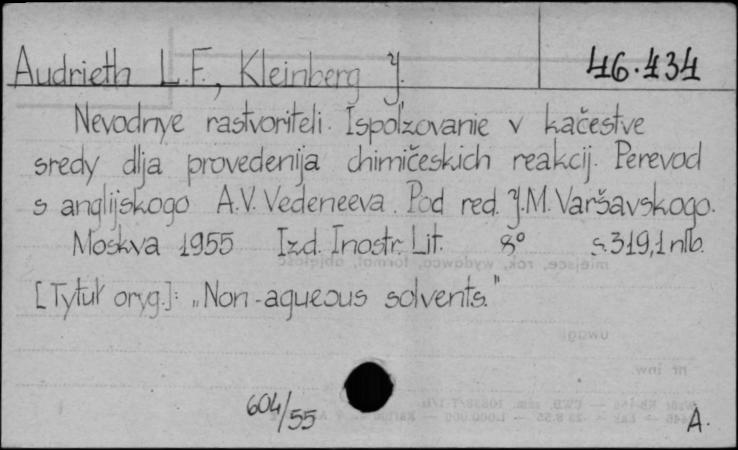 Audrieth L.F., Kleinberg J. 46.434
Nevodnye rastvoriteli. Ispol'zovanie v kačestve
sredy dlja provedenija chimičeskich reakcij. Perevod
s anglijskogo A.V. Vedeneeva. Pod red. J.M. Varšavskogo.
Moskva 1955 Izd. Inostr. Lit. 8° s. 319, 1 nlb.
[Tytuł oryg.]: „Non-aqueous solvents."
604/55
A.